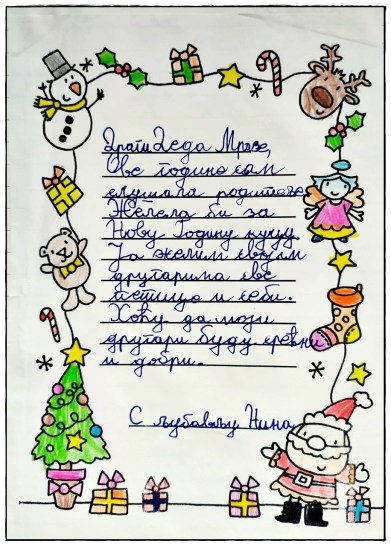 Драги Деда Мразе,
Ове године сам
слушала родитеље.
Желела би за
Нову Годину куцу.
Ја желим свим
другарима све
петице и себи.
Хоћу да моји
другари буду срећни
и добри.
С љубављу Нина